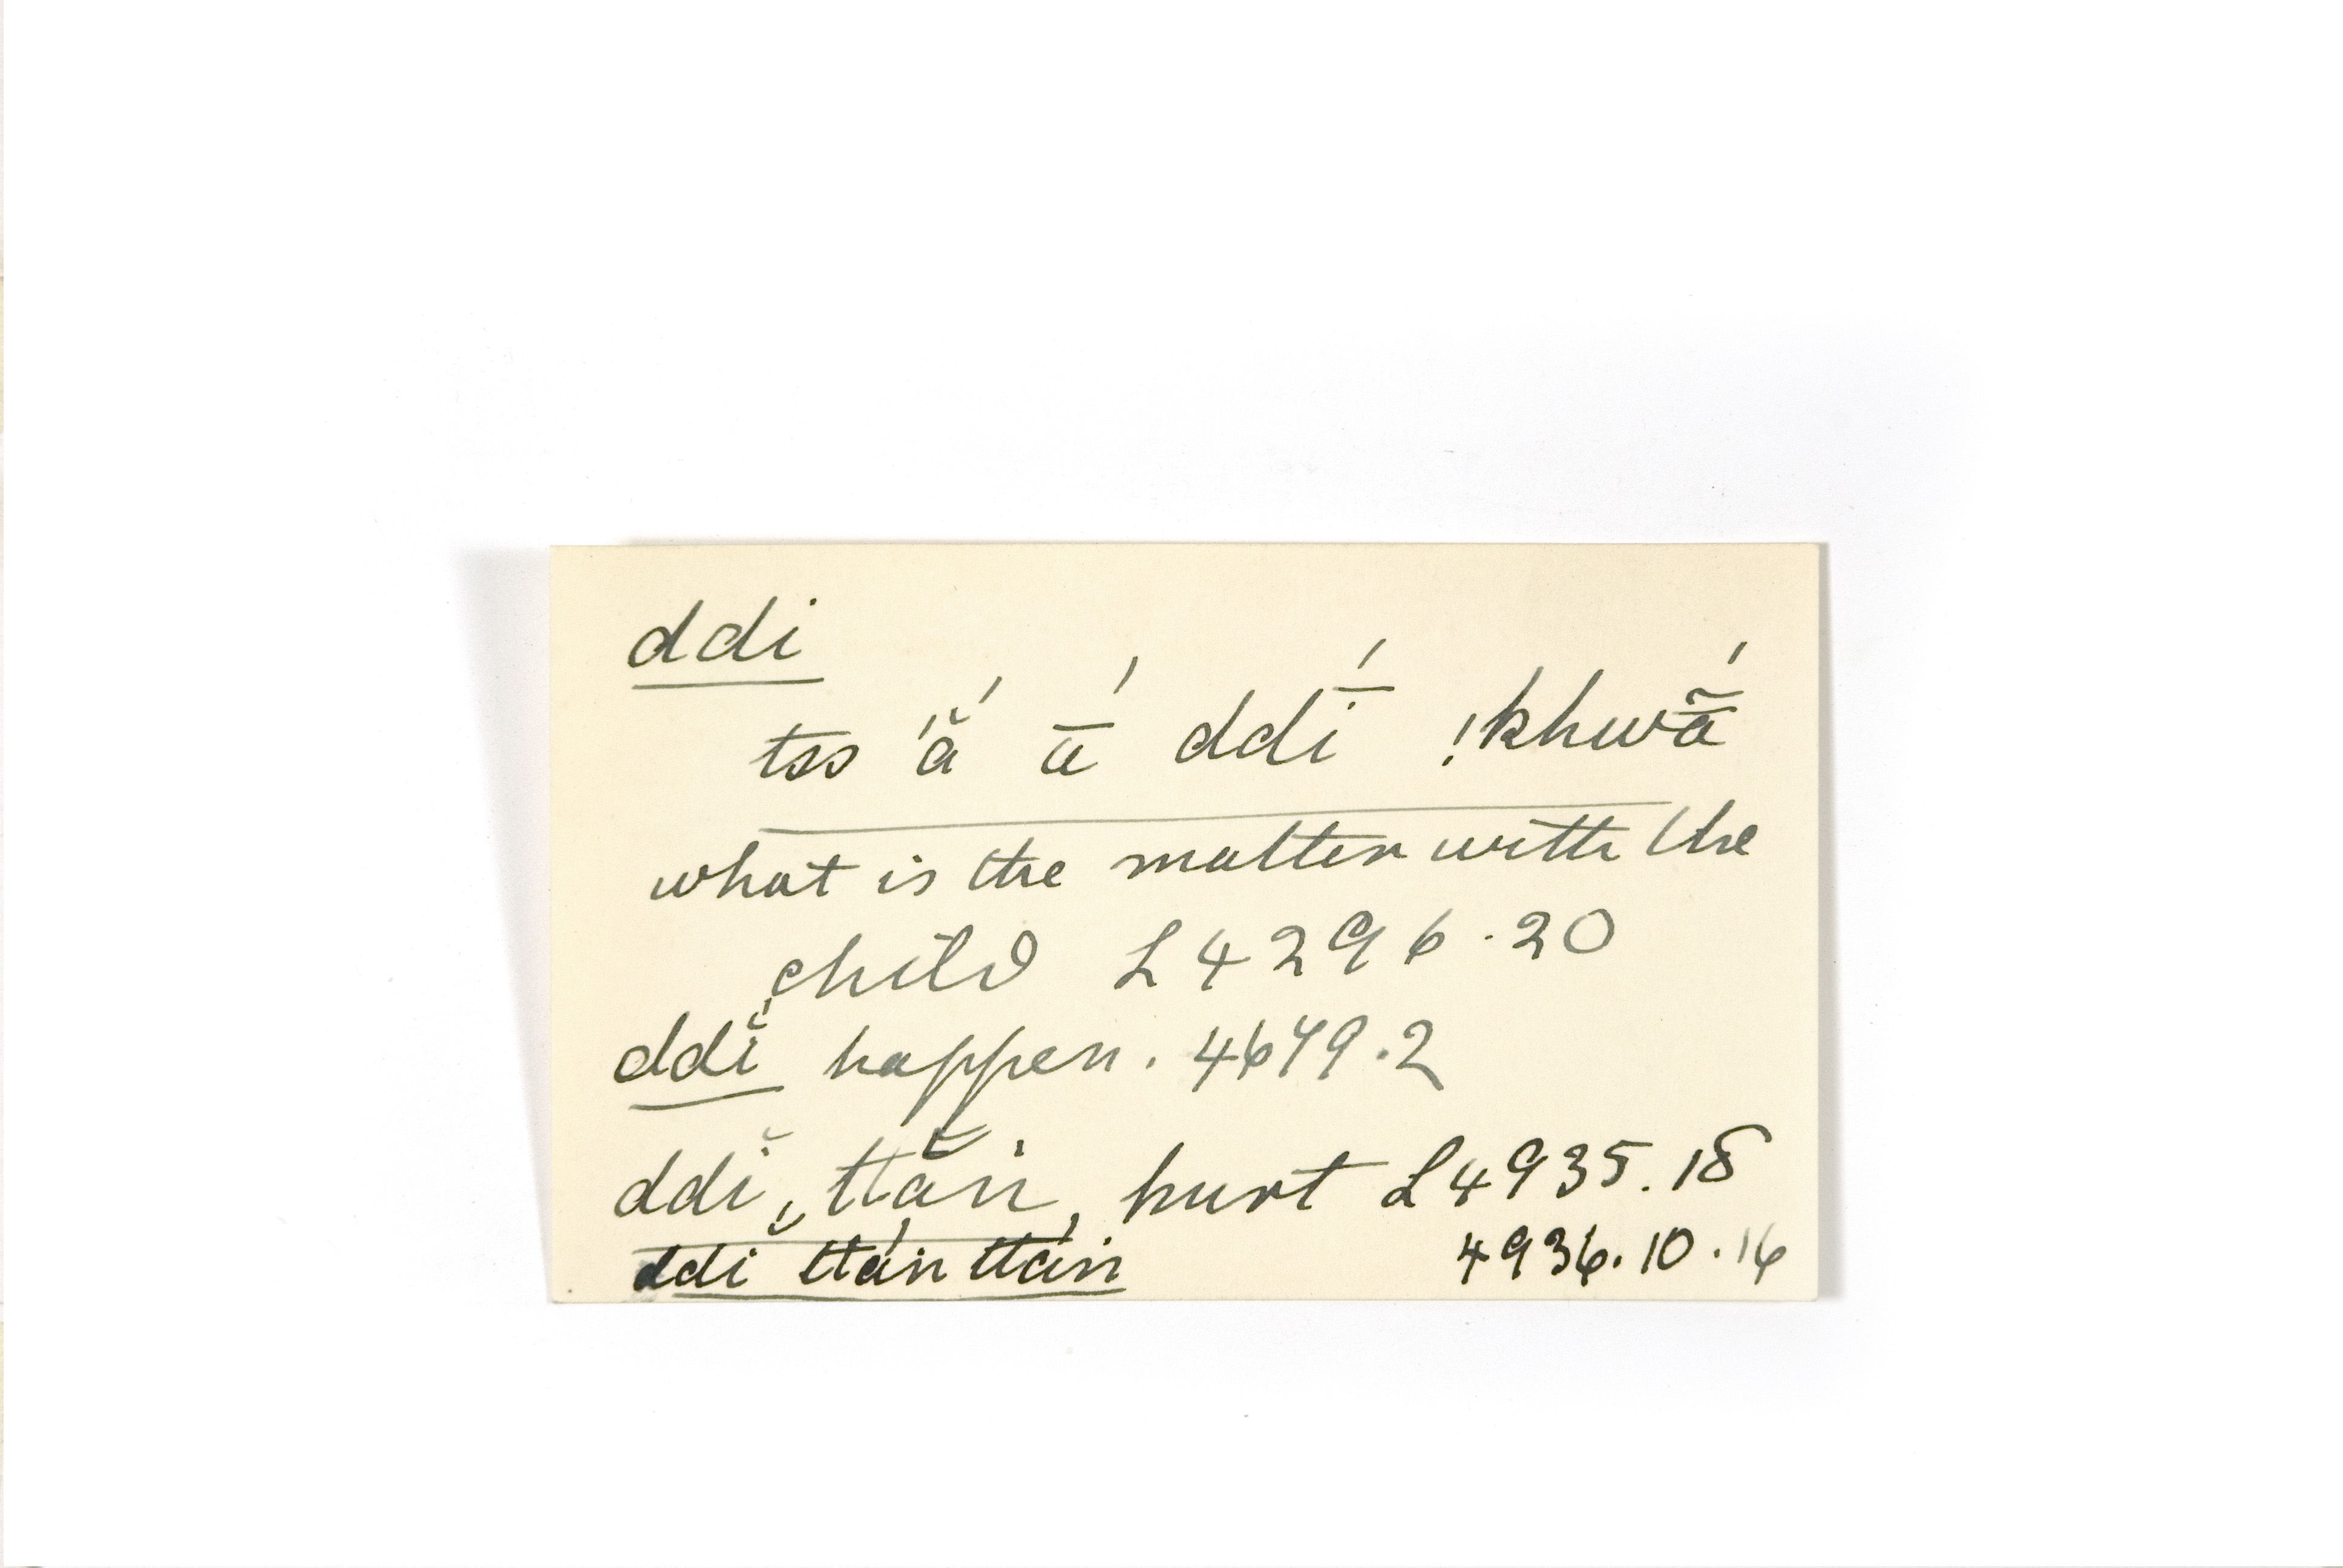 ddi
tss 'ắ ā́ ddī́ !khwā̰́
what is the matter with the
child L 4296.20
ddĭ́ happen. 4679.2
ddĭ, ttăṅ, hurt L4935.18
ddĭ ttáṅ ttáṅ 4936.10.16